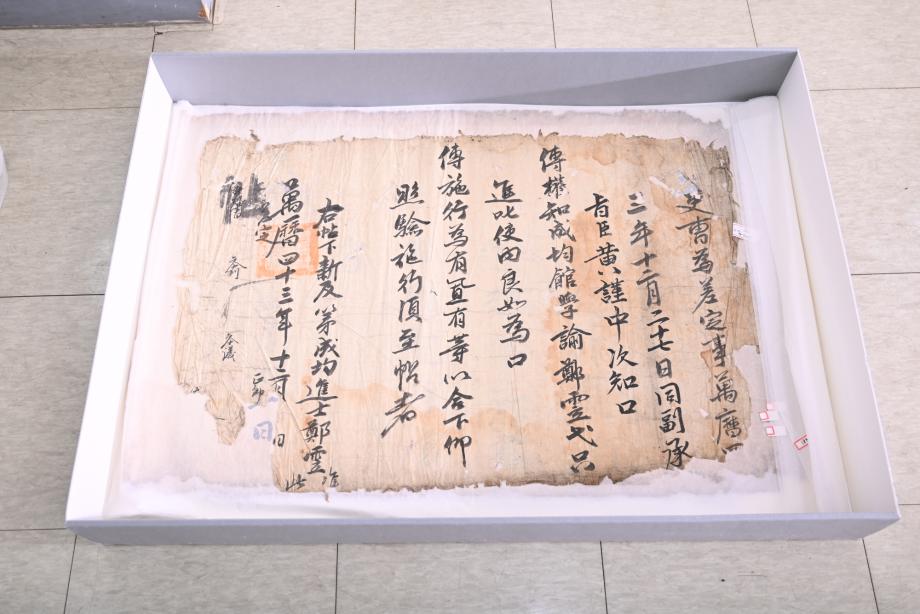 吏曹為差定事萬曆
三年十二月二十七日同副承
旨臣黃謹中次知口
傳權知成均館學諭鄭雲弋只
進叱使內良如為口
傳施行為有置有等以合下仰
照驗施行須至帖者
右帖下新及第成均進士鄭雲 准此
萬曆四十三年十二月 日
定
參議
正郎
日